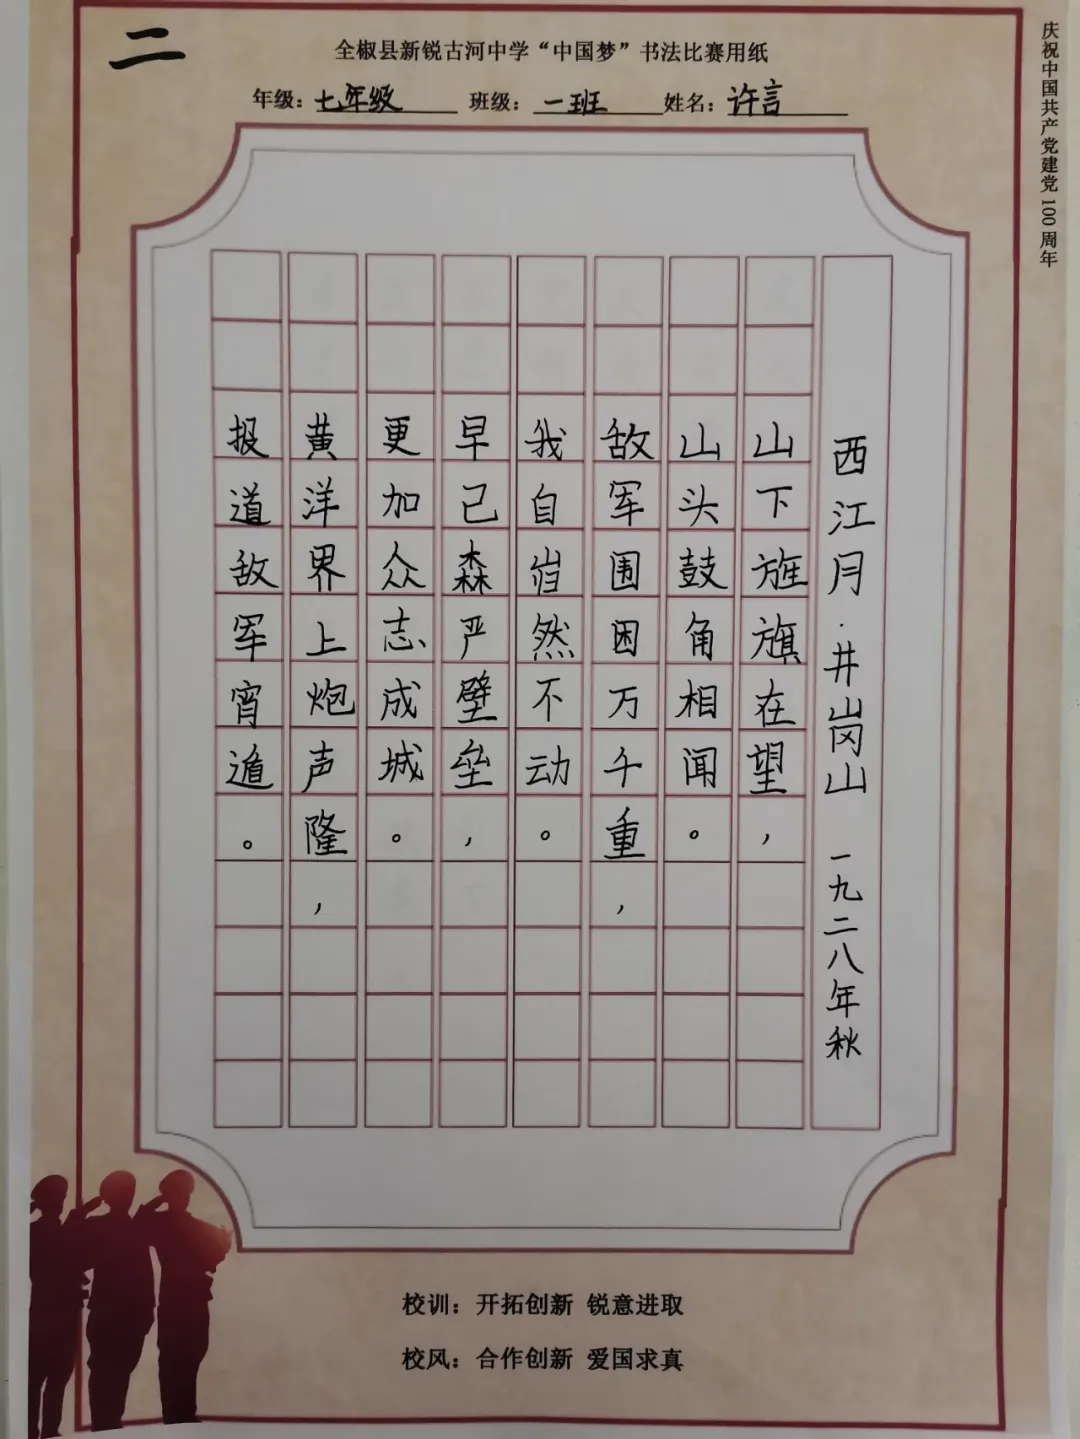 二
全椒县新锐古河中学“中国梦”书法比赛用纸
年级：七年级 班级：一班 姓名：许言
庆祝中国共产党建党100周年
西江月·井岗山 一九二八年秋
山下旌旗在望，
山头鼓角相闻。
敌军围困万千重，
我自岿然不动。
早已森严壁垒，
更加众志成城。
黄洋界上炮声隆，
报道敌军宵遁。
校训：开拓创新 锐意进取
校风：合作创新 爱国求真